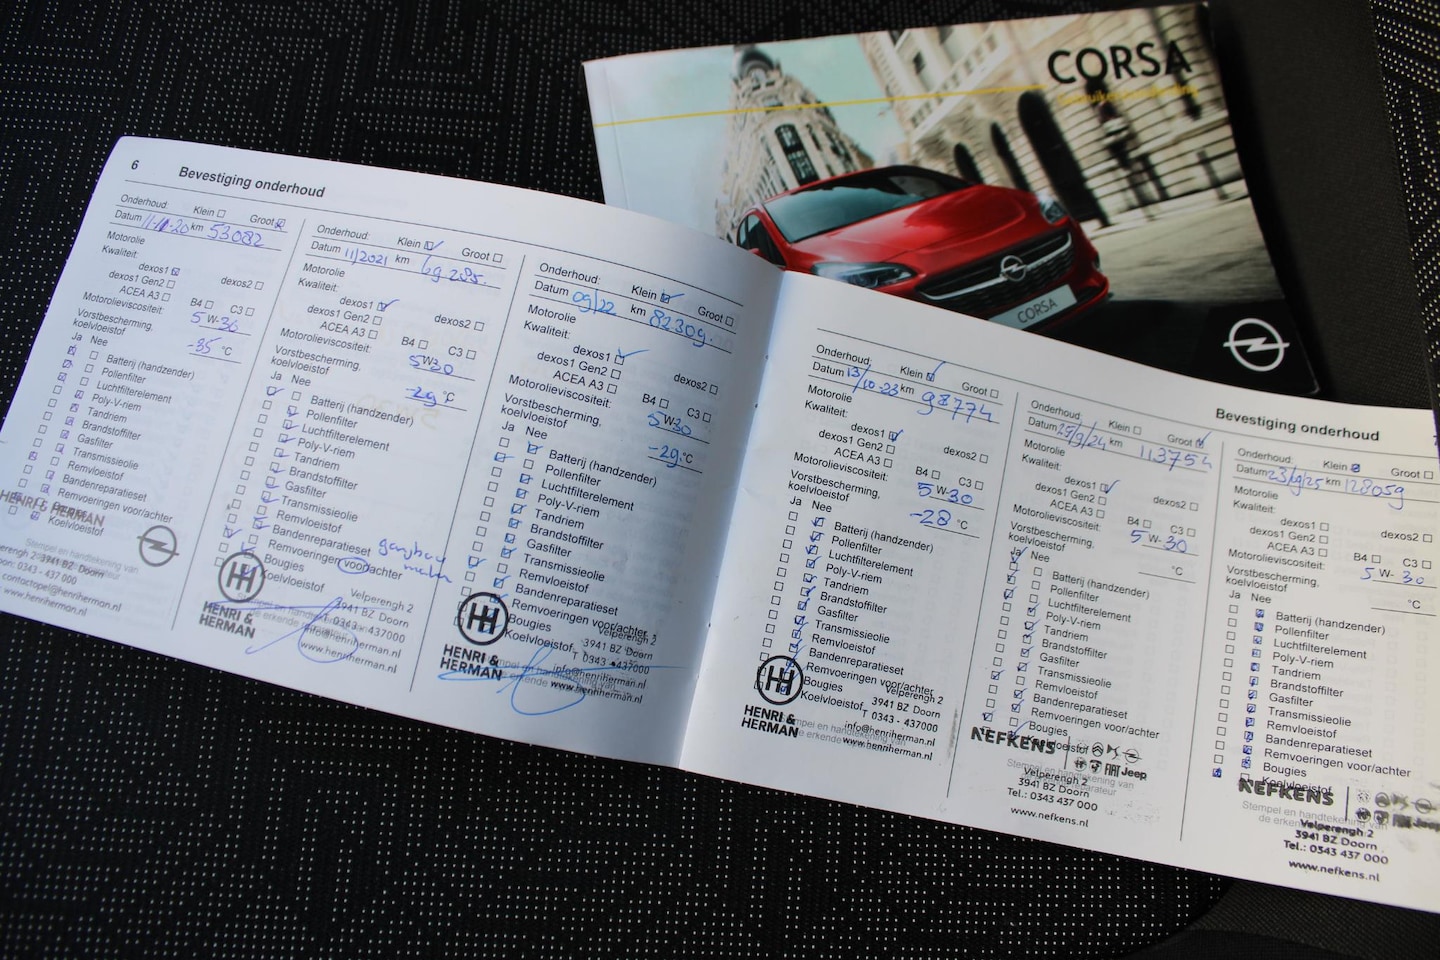 CORSA
CORSA
6
Bevestiging onderhoud
Onderhoud: Klein Groot
Datum 11-11-20 km 53082
Motorolie
Kwaliteit:
dexos1
dexos1 Gen2 dexos2
ACEA A3
B4 C3
Motorolieviscositeit: 5 W-30
Vorstbescherming,
koelvloeistof -35 °C
Ja Nee
Batterij (handzender)
Pollenfilter
Luchtfilterelement
Poly-V-riem
Tandriem
Brandstoffilter
Gasfilter
Transmissieolie
Remvloeistof
Bandenreparatieset
Remvoeringen voor/achter
Koelvloeistof
HENRI & HERMAN
3941 BZ Doorn
0343 - 437 000
www.henriherman.nl
Onderhoud: Klein Groot
Datum 11/2021 km 69285.
Motorolie
Kwaliteit:
dexos1
dexos1 Gen2 dexos2
ACEA A3
B4 C3
Motorolieviscositeit: 5W30
Vorstbescherming,
koelvloeistof -29 °C
Ja Nee
Batterij (handzender)
Pollenfilter
Luchtfilterelement
Poly-V-riem
Tandriem
Brandstoffilter
Gasfilter
Transmissieolie
Remvloeistof
Bandenreparatieset
Remvoeringen voor/achter
Bougies
Koelvloeistof
HENRI &
HERMAN
Velperengh 2
3941 BZ Doorn
0343 - 437000
info@henriherman.nl
www.henriherman.nl
Onderhoud: Klein Groot
Datum 09/22 km 82309.
Motorolie
Kwaliteit:
dexos1
dexos1 Gen2 dexos2
ACEA A3
B4 C3
Motorolieviscositeit: 5 W30
Vorstbescherming,
koelvloeistof -29 °C
Ja Nee
Batterij (handzender)
Pollenfilter
Luchtfilterelement
Poly-V-riem
Tandriem
Brandstoffilter
Gasfilter
Transmissieolie
Remvloeistof
Bandenreparatieset
Remvoeringen voor/achter
Bougies
Koelvloeistof
HENRI &
HERMAN
Velperengh 2
3941 BZ Doorn
T 0343 - 437000
info@henriherman.nl
www.henriherman.nl
Onderhoud: Klein Groot
Datum 13/10-23 km 98774
Motorolie
Kwaliteit:
dexos1
dexos1 Gen2 dexos2
ACEA A3
B4 C3
Motorolieviscositeit: 5 W-30
Vorstbescherming,
koelvloeistof -28 °C
Ja Nee
Batterij (handzender)
Pollenfilter
Luchtfilterelement
Poly-V-riem
Tandriem
Brandstoffilter
Gasfilter
Transmissieolie
Remvloeistof
Bandenreparatieset
Remvoeringen voor/achter
Bougies
Koelvloeistof
HENRI &
HERMAN
Velperengh 2
3941 BZ Doorn
T 0343 - 437000
info@henriherman.nl
www.henriherman.nl
Bevestiging onderhoud
Onderhoud: Klein Groot
Datum 25/9/24 km 113754
Motorolie
Kwaliteit:
dexos1
dexos1 Gen2 dexos2
ACEA A3
B4 C3
Motorolieviscositeit: 5 W-30
Vorstbescherming,
koelvloeistof °C
Ja Nee
Batterij (handzender)
Pollenfilter
Luchtfilterelement
Poly-V-riem
Tandriem
Brandstoffilter
Gasfilter
Transmissieolie
Remvloeistof
Bandenreparatieset
Remvoeringen voor/achter
Bougies
Koelvloeistof
NEFKENS
FIAT Jeep
Velperengh 2
3941 BZ Doorn
Tel.: 0343 437 000
www.nefkens.nl
Onderhoud: Klein Groot
Datum 23/9/25 km 128059
Motorolie
Kwaliteit:
dexos1
dexos1 Gen2 dexos2
ACEA A3
B4 C3
Motorolieviscositeit: 5 W- 30
Vorstbescherming,
koelvloeistof °C
Ja Nee
Batterij (handzender)
Pollenfilter
Luchtfilterelement
Poly-V-riem
Tandriem
Brandstoffilter
Gasfilter
Transmissieolie
Remvloeistof
Bandenreparatieset
Remvoeringen voor/achter
Bougies
Koelvloeistof
NEFKENS
Stempel en handtekening van
Velperengh 2
3941 BZ Doorn
Tel.: 0343 437 000
www.nefkens.nl